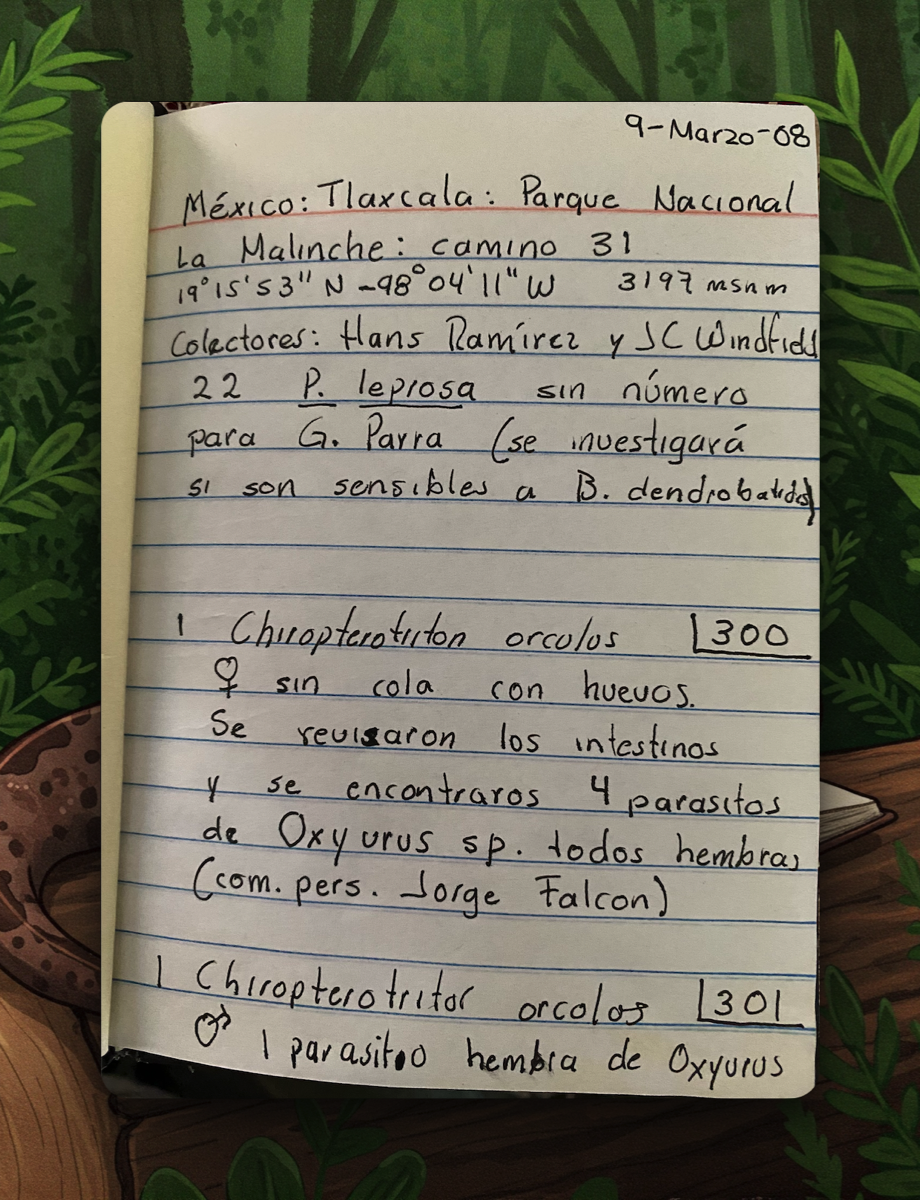 9-Marzo-08
México: Tlaxcala: Parque Nacional
La Malinche: camino 31
19°15'53" N -98°04'11" W 3197 msnm
Colectores: Hans Ramírez y JC Windfield
22 P. leprosa sin número
para G. Parra (se investigará
si son sensibles a B. dendrobatidis)
1 Chiropterotriton orculos 300
♀ sin cola con huevos.
Se revisaron los intestinos
y se encontraros 4 parasitos
de Oxyurus sp. todos hembras
(com. pers. Jorge Falcon)
1 Chiropterotritor orcolos 301
♂ 1 parasitoo hembra de Oxyurus